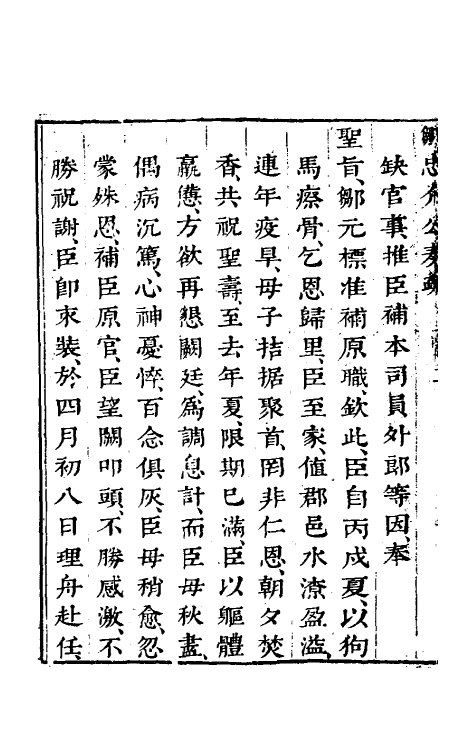 鄒忠介公奏疏
缺官事、推臣補本司員外郎等因、奉
聖旨、鄒元標准補原職、欽此、臣自丙戌夏、以狗
馬瘵骨、乞恩歸里、臣至家、值郡邑水潦盈溢、
連年疫旱、母子拮据聚首、罔非仁恩、朝夕焚
香、共祝聖壽、至去年夏、限期已滿、臣以軀體
羸憊、方欲再懇闕廷、為調息計、而臣母秋盡、
偶病沉篤、心神憂悴、百念俱灰、臣母稍愈、忽
蒙殊恩、補臣原官、臣望闕叩頭、不勝感激、不
勝祝謝、臣即束裝、於四月初八日理舟赴任、